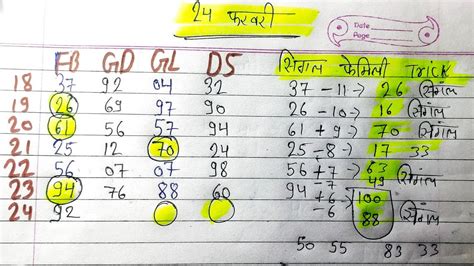 24 फरवरी
Date
Page
FB GD GL DS सिंगल फेमिली TRICK
18 37 92 04 32 37 - 11 → 26 सिंगल
19 26 69 97 90 26 - 10 → 16 सिंगल
20 61 56 57 94 61 + 9 → 70 सिंगल
21 25 12 70 24 25 - 8 → 17 33
22 56 07 07 98 56 + 7 → 63
49
23 94 76 88 60 94 +6 → 100
24 92 -6 88 सिंगल
50 55 83 33